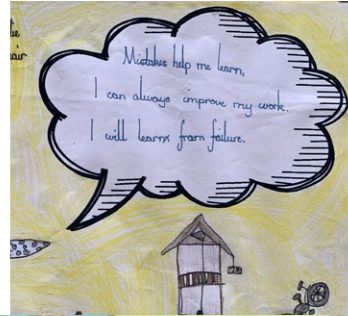 Mistakes help me learn,
I can always improve my work.
I will learn from failure.